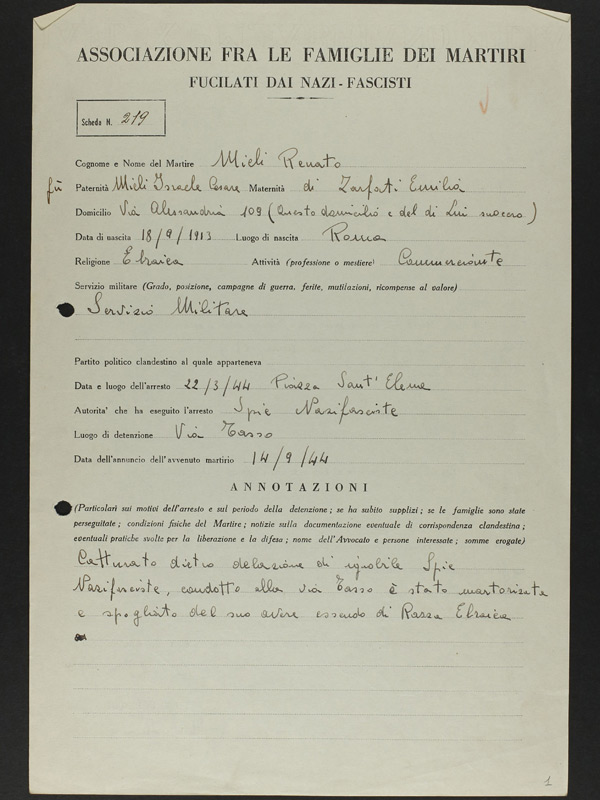 ASSOCIAZIONE FRA LE FAMIGLIE DEI MARTIRI
FUCILATI DAI NAZI-FASCISTI
Scheda N. 219
Cognome e Nome del Martire Mieli Renato
fù Paternità Mieli Israele Cesare Maternità di Zarfati Emilia
Domicilio Via Alessandria 109 (Questo domicilio e del di Lui suocero)
Data di nascita 18/9/1913 Luogo di nascita Roma
Religione Ebraica Attività (professione o mestiere) Commerciante
Servizio militare (Grado, posizione, campagne di guerra, ferite, mutilazioni, ricompense al valore)
Servizio Militare
Partito politico clandestino al quale apparteneva
Data e luogo dell'arresto 22/3/44 Piazza Sant' Elena
Autorita' che ha eseguito l'arresto Spie Nazifasciste
Luogo di detenzione Via Tasso
Data dell'annuncio dell'avvenuto martirio 14/9/44
ANNOTAZIONI
(Particolari sui motivi dell'arresto e sul periodo della detenzione; se ha subito supplizi; se le famiglie sono state
perseguitate; condizioni fisiche del Martire; notizie sulla documentazione eventuale di corrispondenza clandestina;
eventuali pratiche svolte per la liberazione e la difesa; nome dell'Avvocato e persone interessate; somme erogate)
Catturato dietro delazione di ignobile Spie
Nazifasciste, condotto alla via Tasso è stato martorizzato
e spogliato del suo avere essendo di Razza Ebraica
1